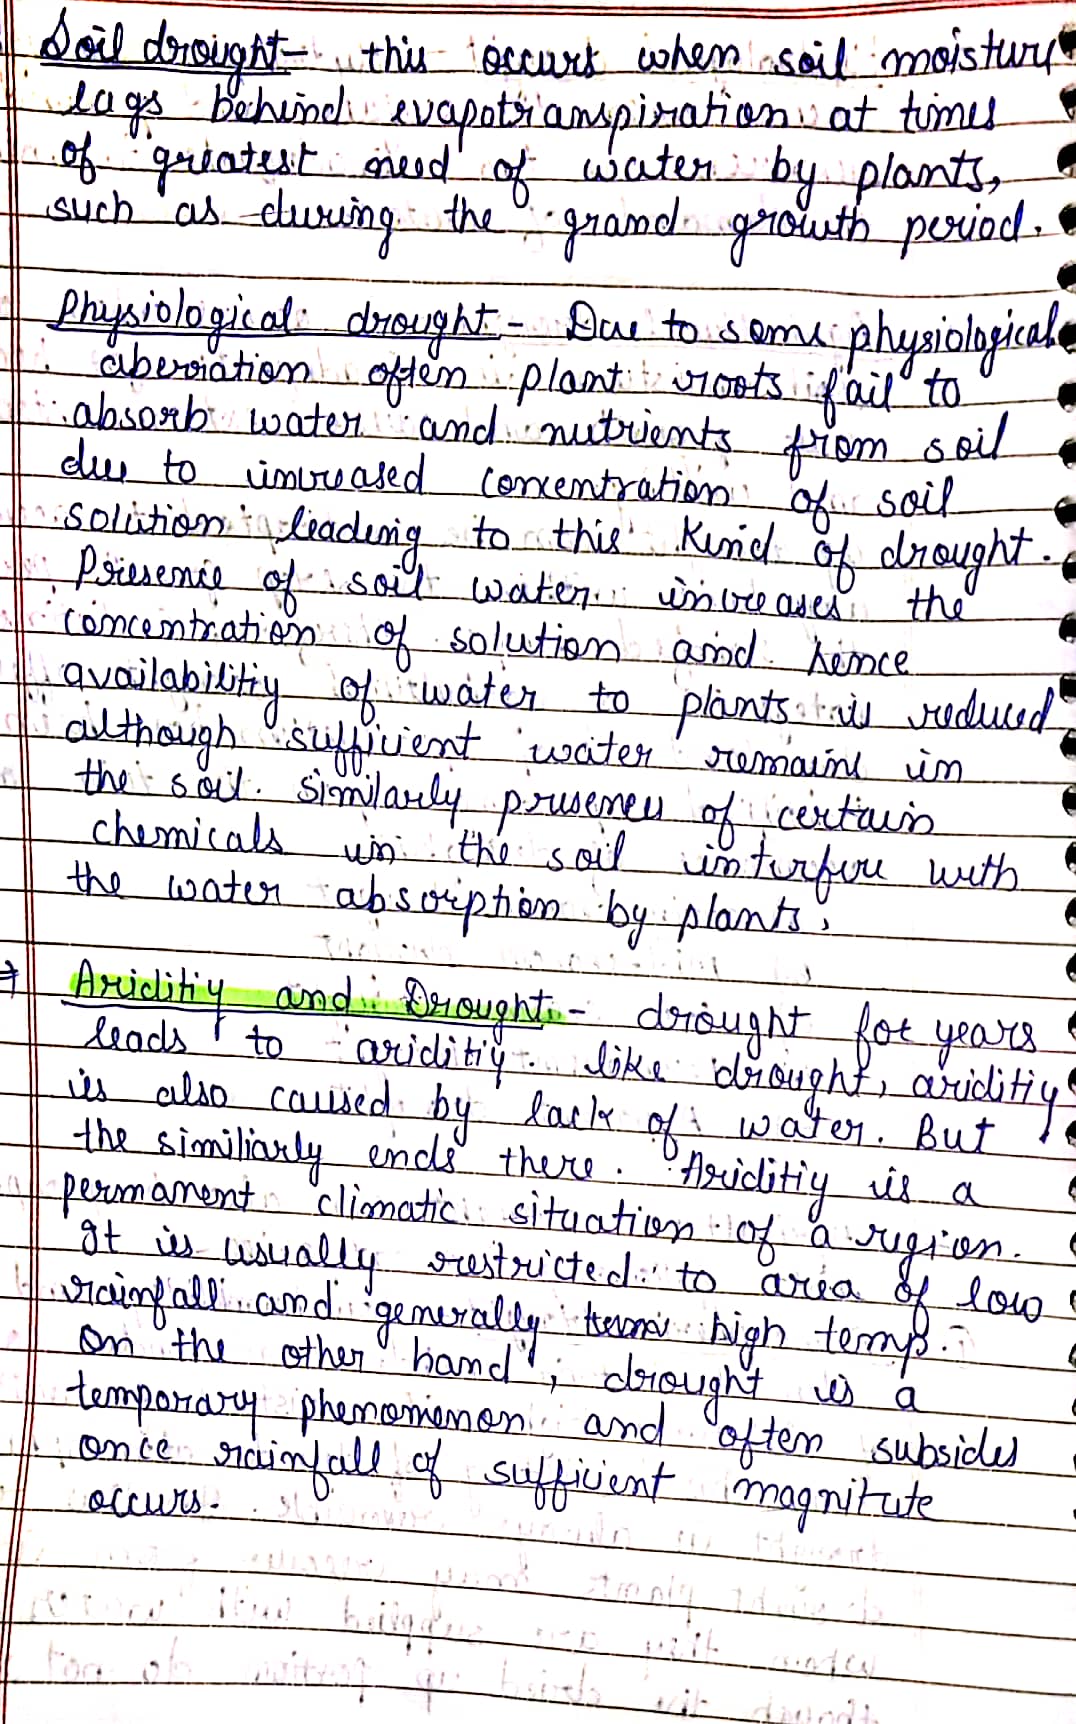 Soil drought- this occurs when soil moisture
lags behind evapotranspiration at times
of greatest need of water by plants,
such as during the grand growth period.
Physiological drought - Due to some physiological
aberration often plant roots fail to
absorb water and nutrients from soil
due to increased concentration of soil
solution leading to this kind of drought.
Presence of soil water increases the
concentration of solution and hence
availabilitiy of water to plants is reduced
although sufficient water remains in
the soil. Similarly presences of certain
chemicals in the soil interfere with
the water absorption by plants.
→ Ariditiy and Drought - drought for years
leads to ariditiy. like drought, ariditiy
is also caused by lack of water. But
the similiarly ends there. Ariditiy is a
permanent climatic situation of a region.
It is usually restricted to area of low
rainfall and generally high temp.
On the other hand, drought is a
temporary phenomenon and often subsides
once rainfall of sufficient magnitute
occurs.